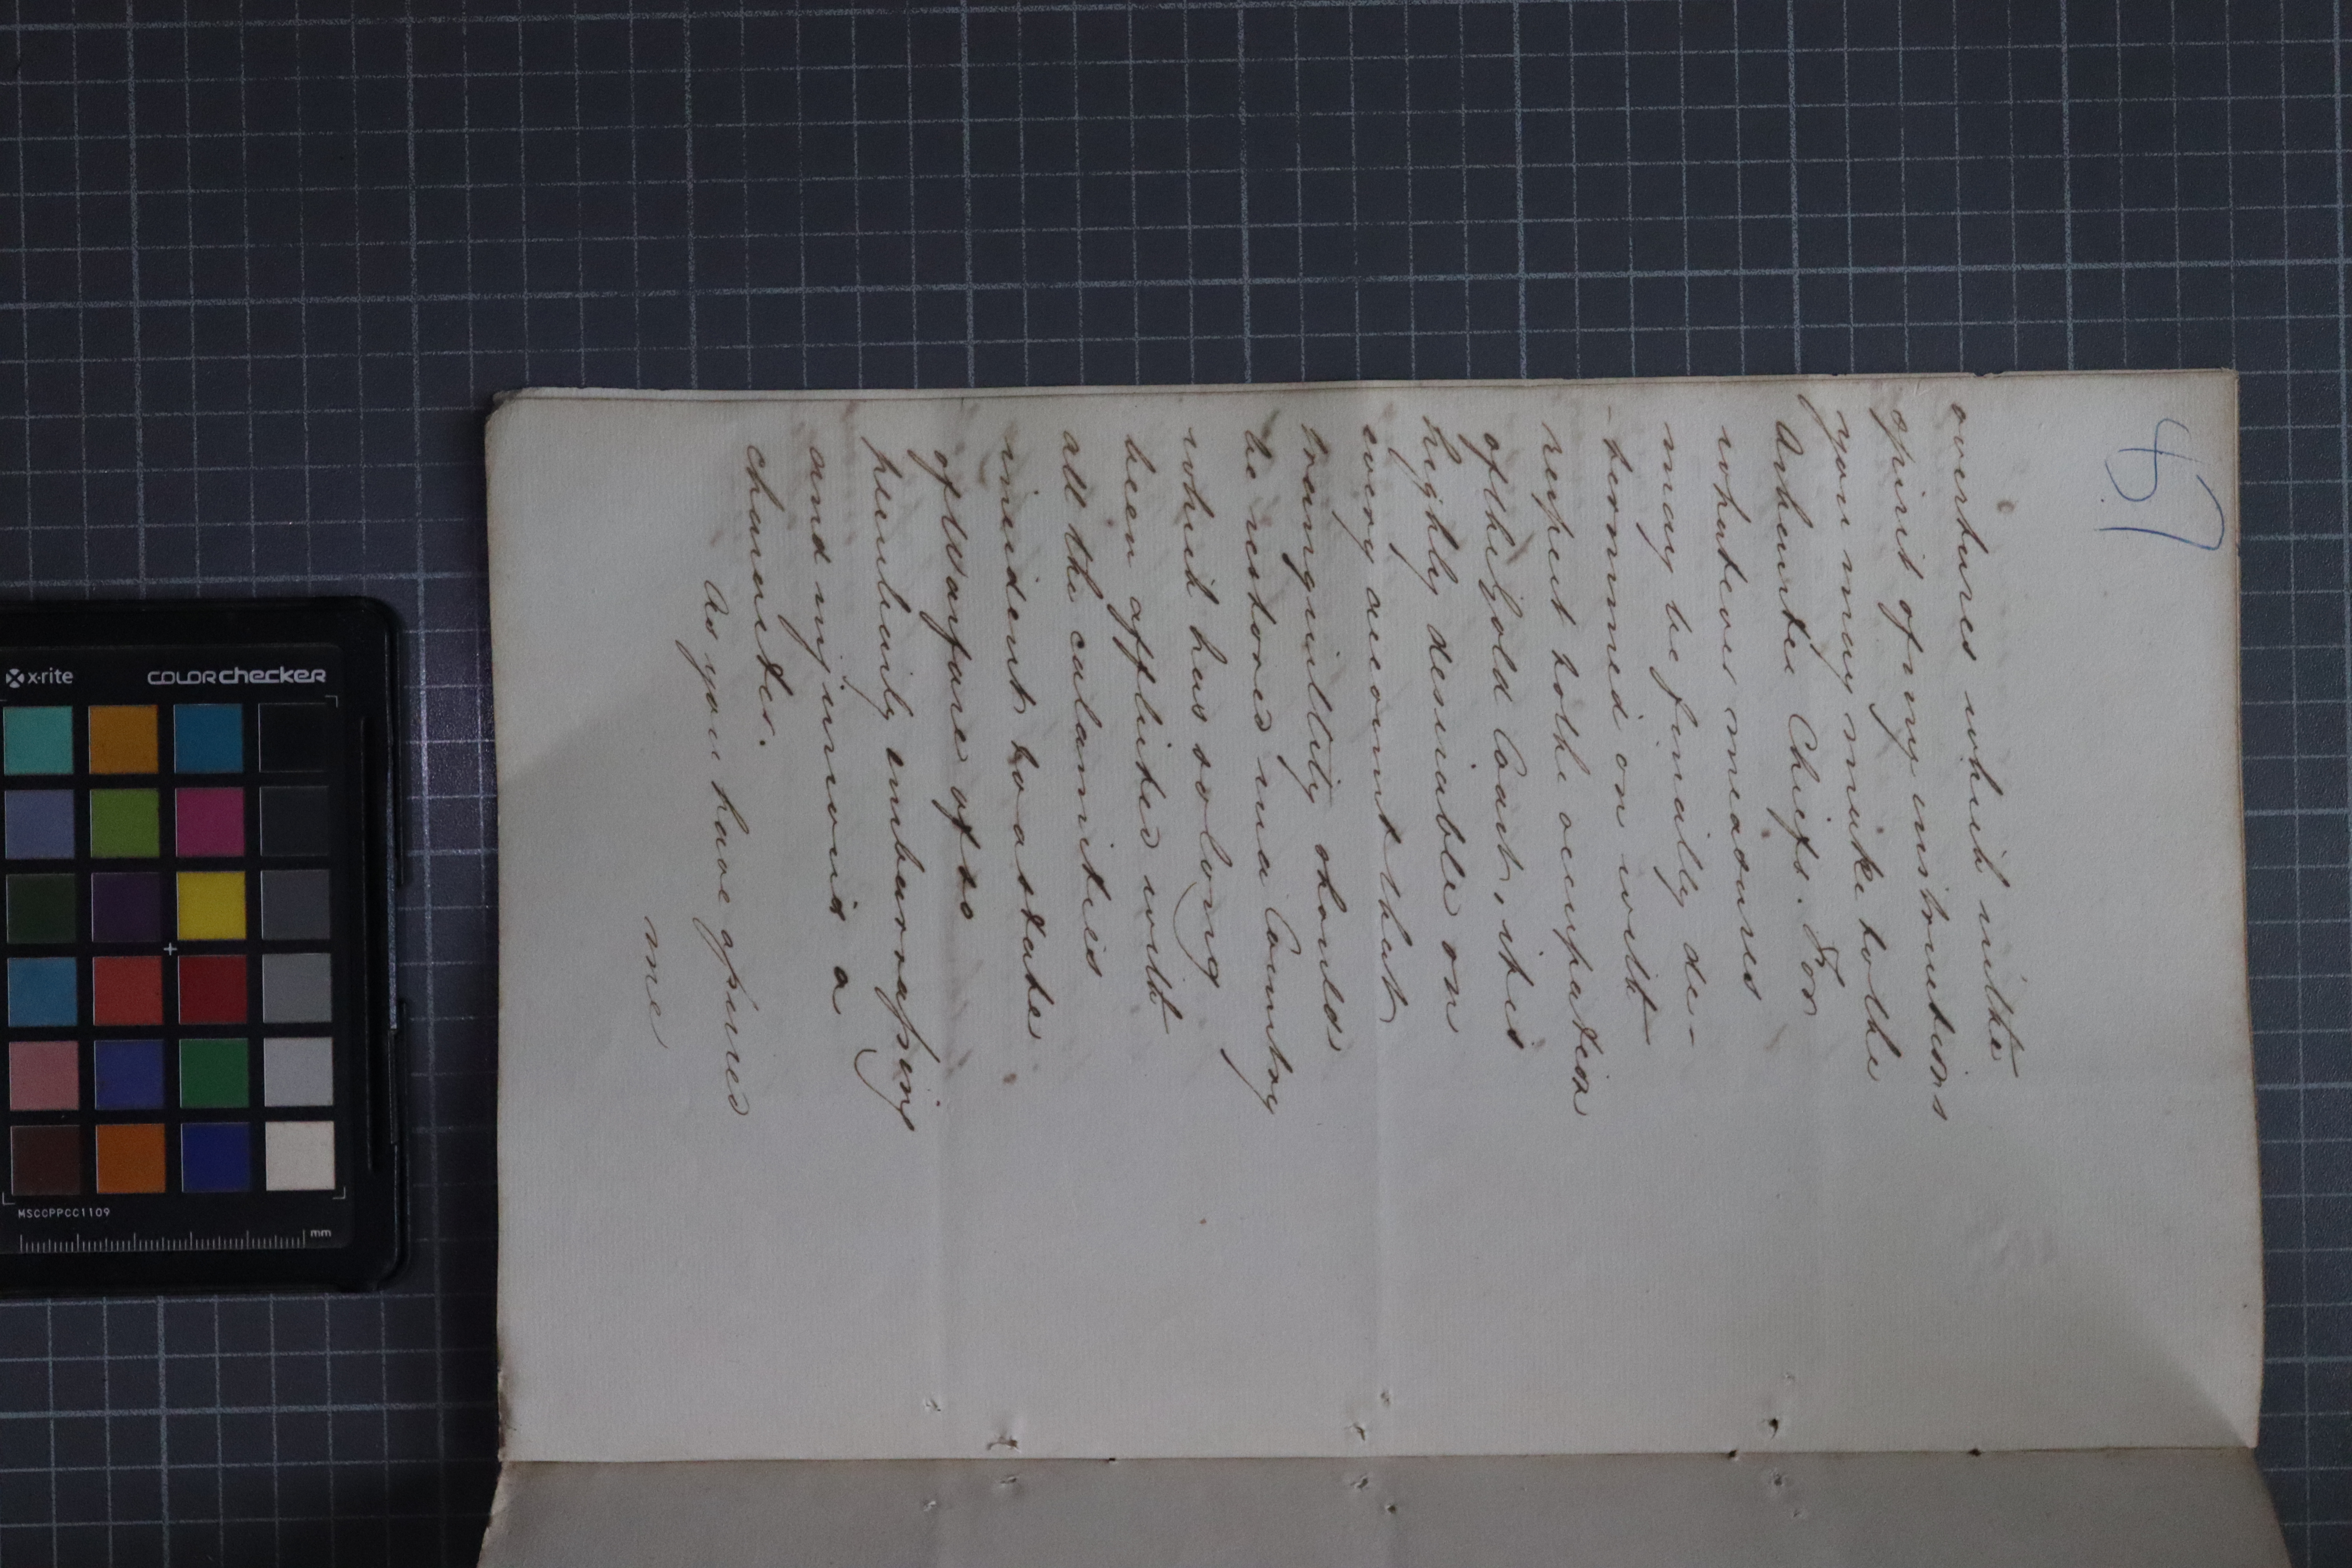 57
overtures which in the
spirit of my instructions
you may make to the
Ashantee Chiefs. For
whatever measures
may be finally de-
-termined on with
respect to the occupation
of the Gold Coast, it is
highly desirable on
every account that
tranquillity should
be restored in a Country
which has so long
been afflicted with
all the calamities
incident to a state
of Warfare of so
peculiarly embarrassing
and injurious a
character.
As you have apprised
me
x-rite
COLORchecker
MSCCPPCC1109
mm